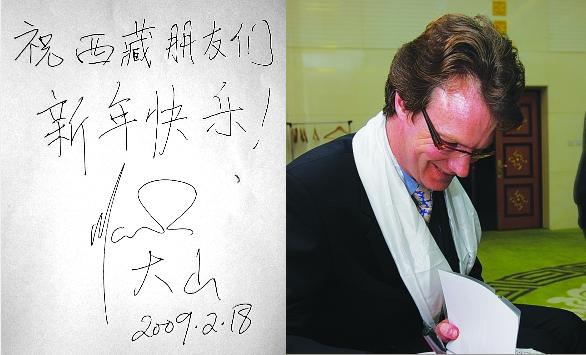 祝西藏朋友们
新年快乐!
大山
2009.2.18